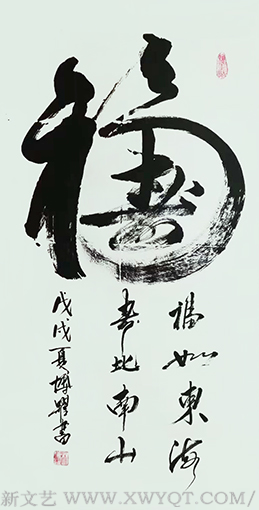 福寿
福如東海
寿比南山
戊戌夏博書
新文艺 WWW.XWYQT.COM/